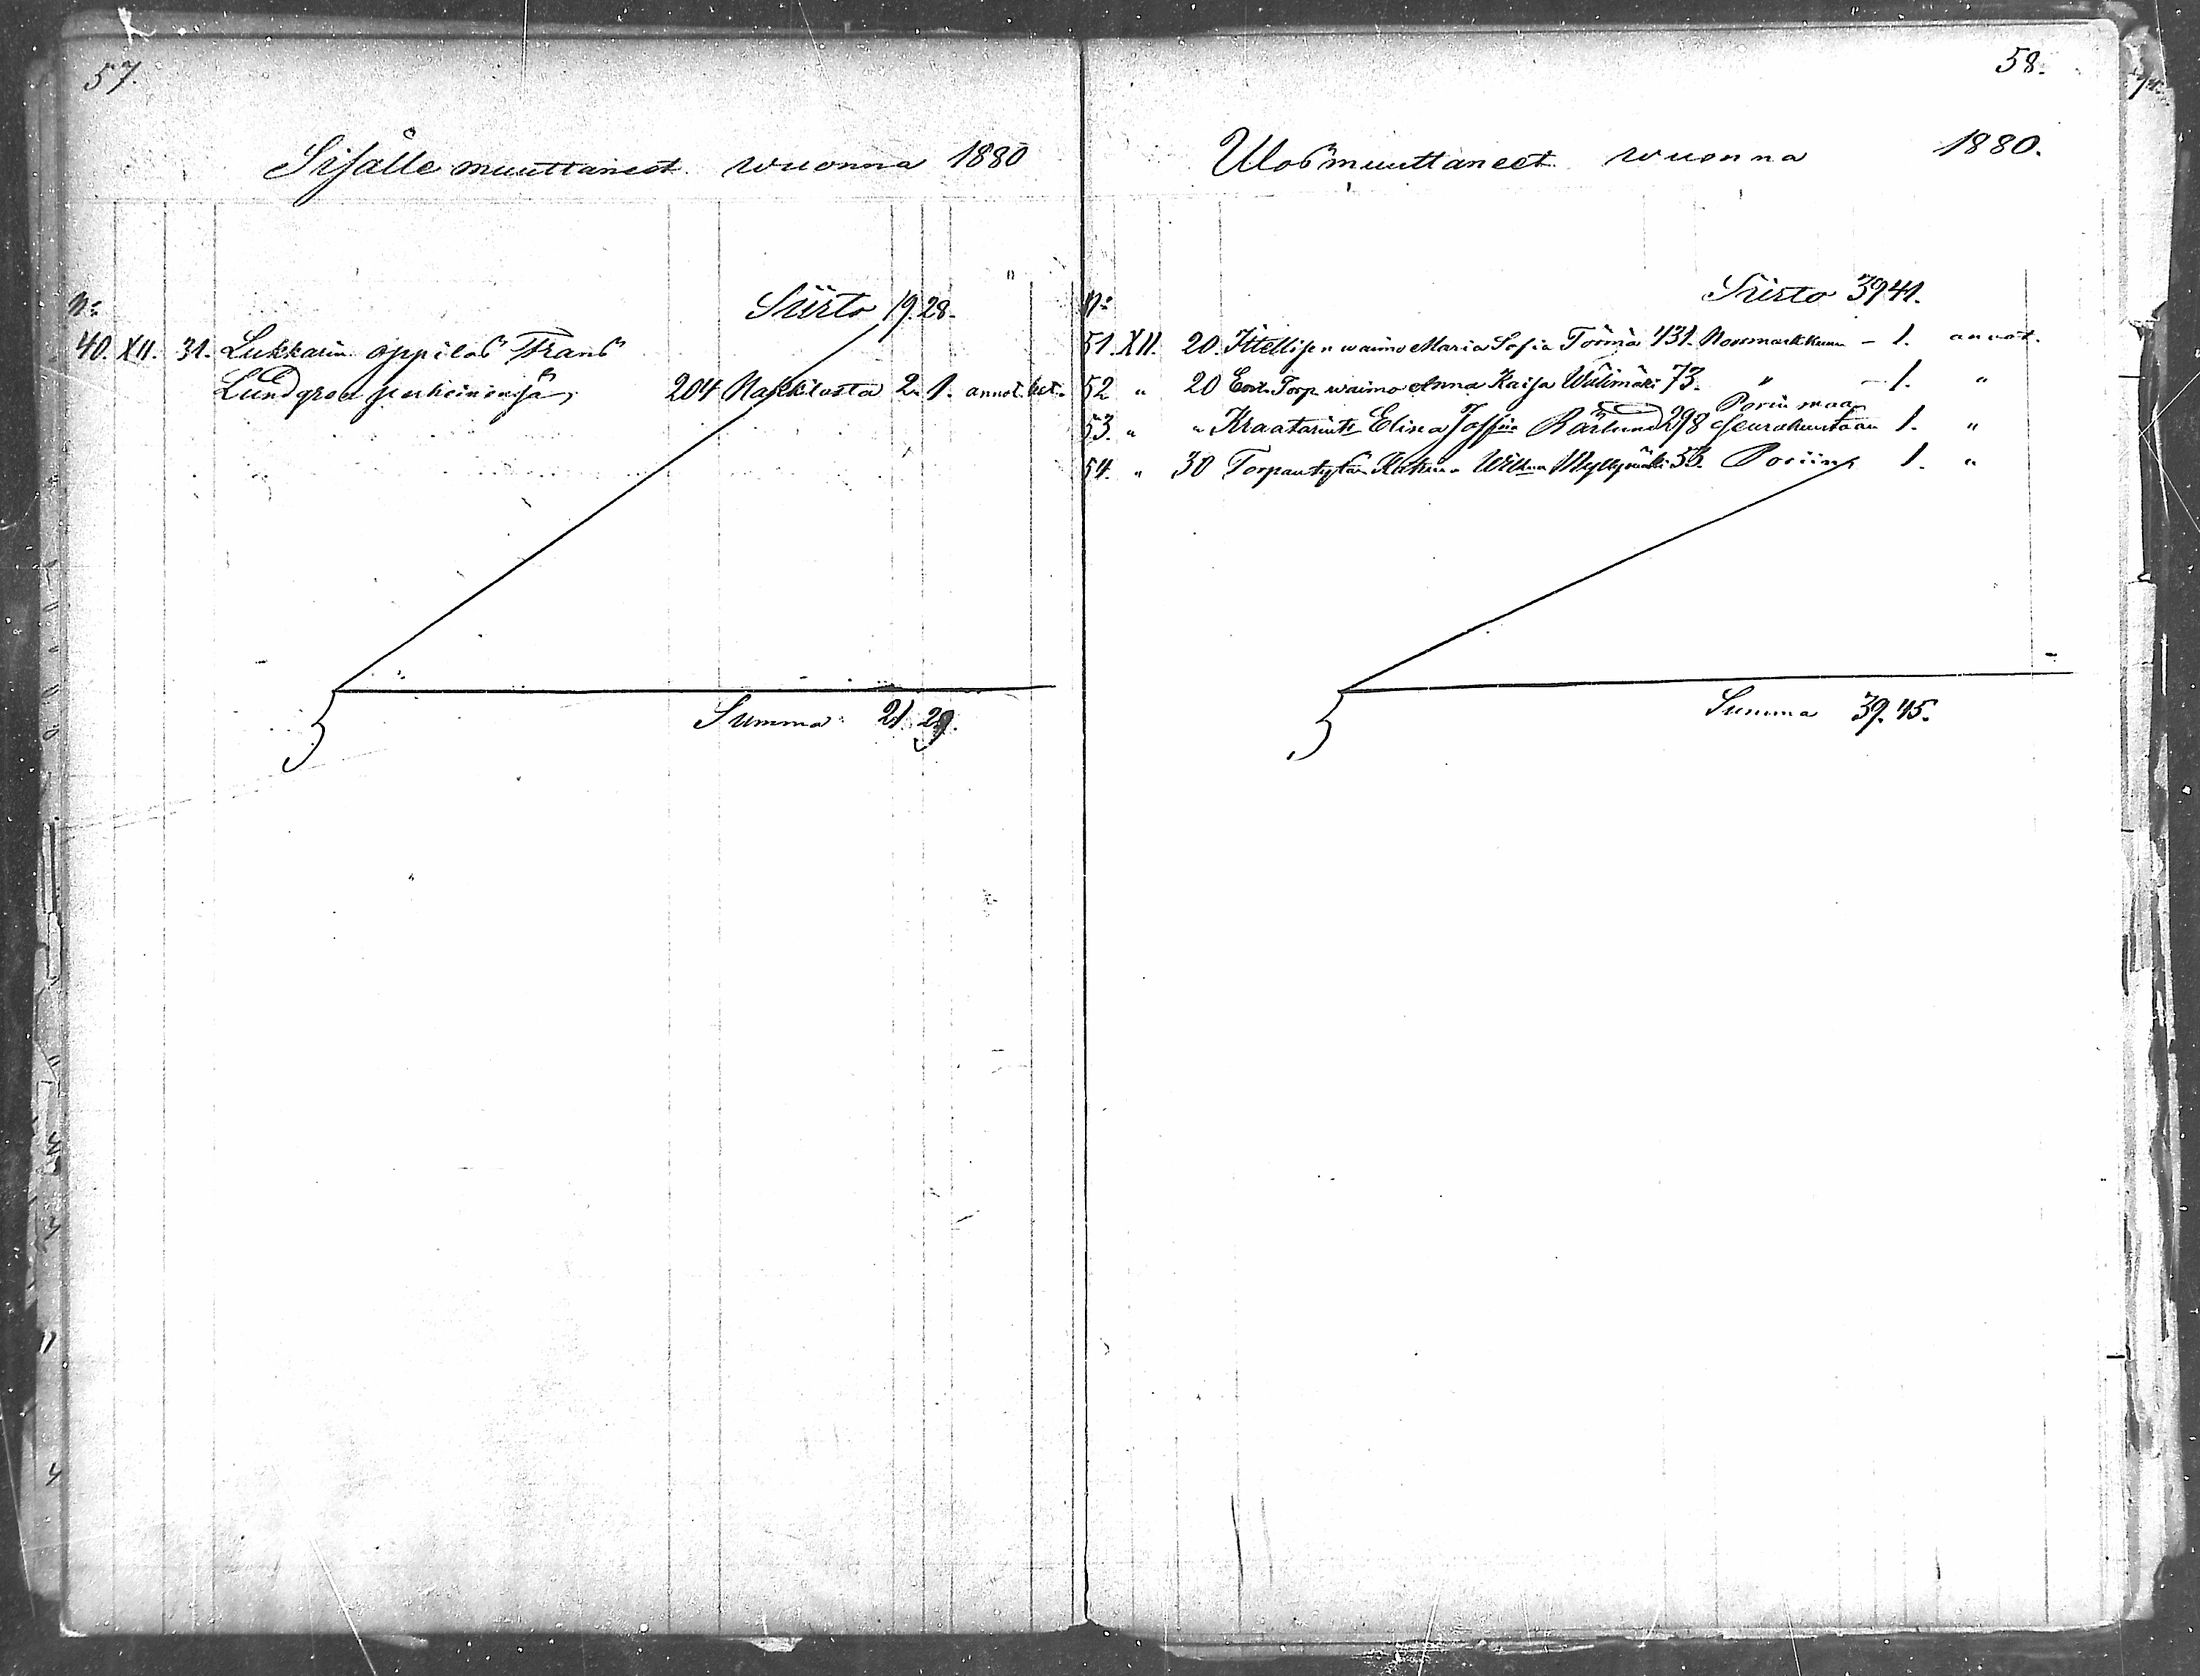 57.
Sisälle muuttaneet wuonna 1880
Siirto 19. 28.
No
40. XII. 31. Lukkarin oppilas Frans
Lundgren perheinensä, 204 Nakkilasta 2. 1. annot. kst.
Summa 21. 29.
58.
Ulosmuuttaneet wuonna 1880.
Siirto 39 41.
No
51. XII. 20. Itellisen waimo Maria Sofia Törmä 431. Noormarkkuun - 1. annot.
52 " 20 Torp. waimo Anna Kaisa Wälimäki 73. " - 1. "
53. " " Elina 298 Porin maa seurakuntaan 1. "
54. " 30 Myllymäki 53. Poriin 1. "
Summa 39. 45.